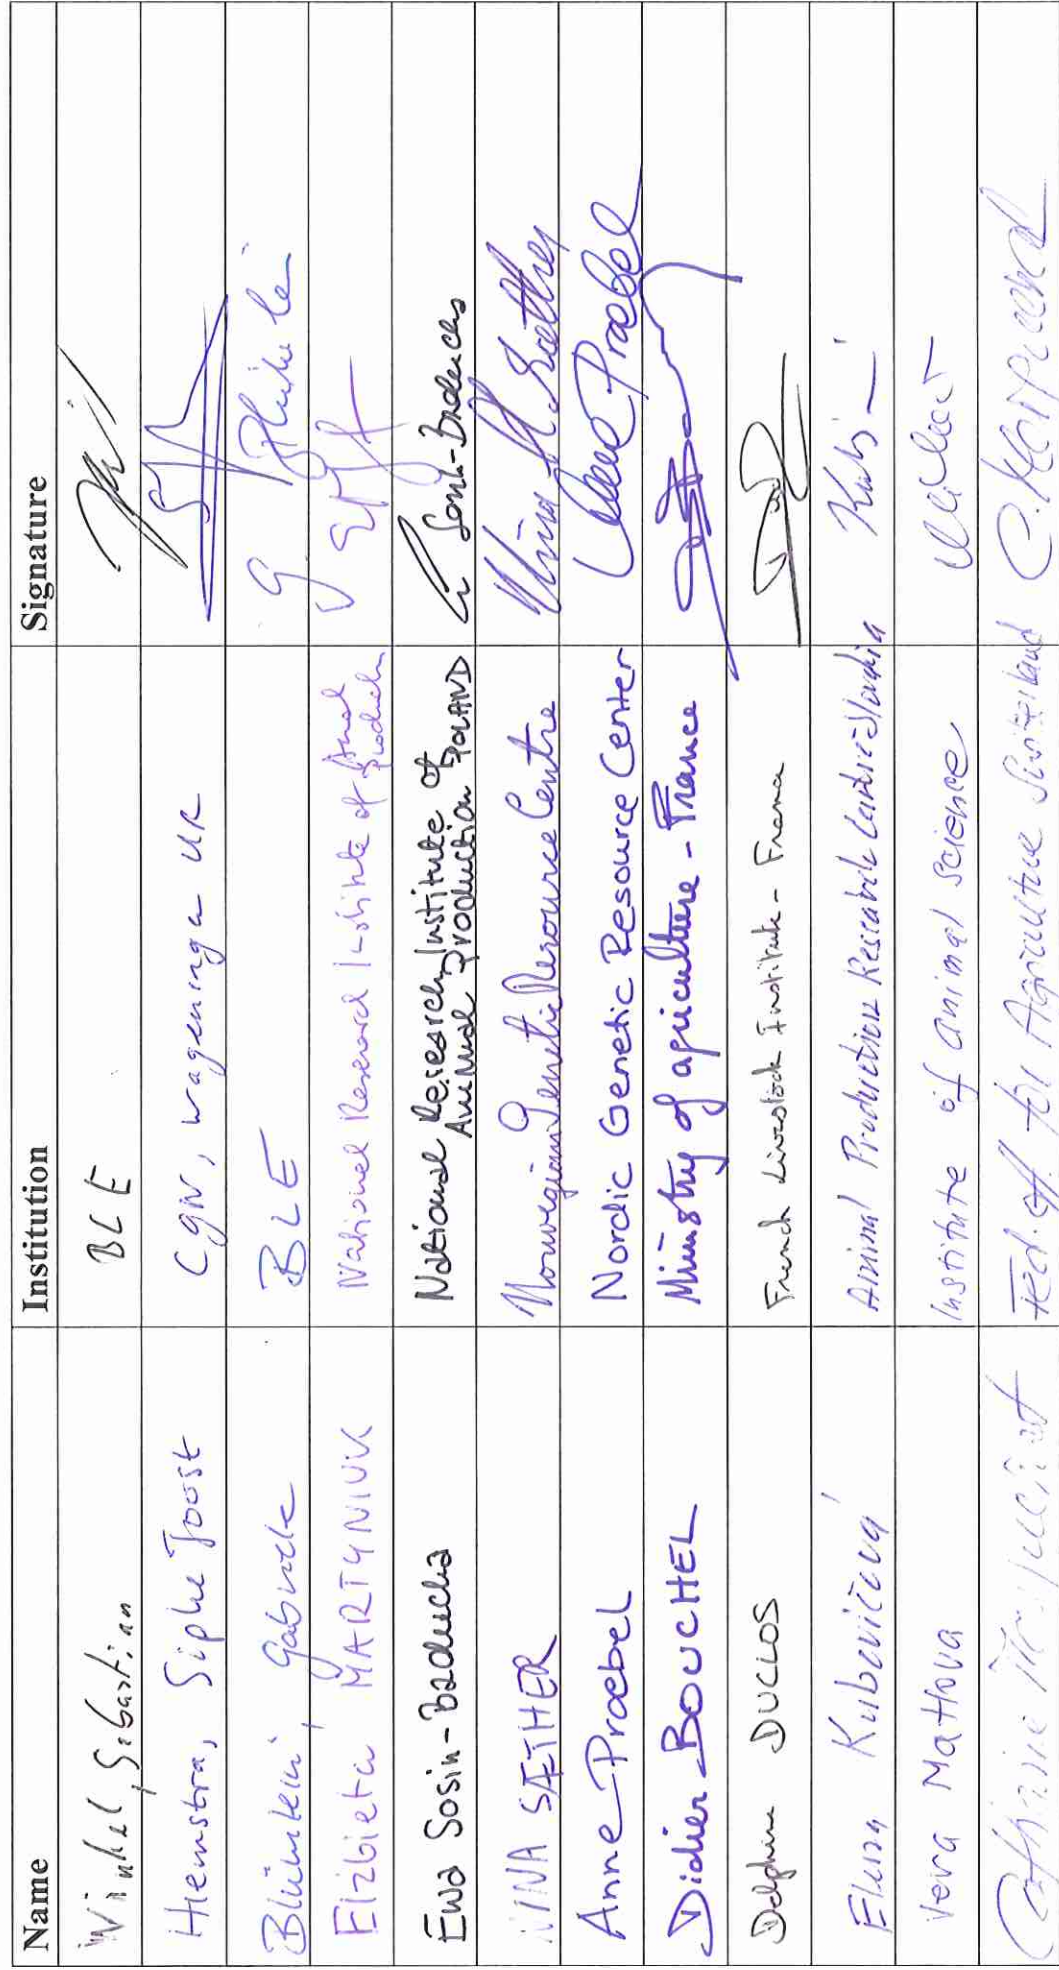 Name Institution Signature
Winkel, Sebastian BLE
Hiemstra, Sipke Joost CGN, Wageninga UR
Blümlein, Gabriele BLE G Blümlein
Elzbieta MARTYNIUK National Research Institute of Animal Production
Ewa Sosin-Bzducha National Research Institute of Animal Production POLAND Sosin-Bzducha
NINA SÆTHER Norwegian Genetic Resource Centre Nina Sæther
Anne Præbel Nordic Genetic Resource Center Anne Præbel
Didier BOUCHEL Ministry of agriculture - France
Delphine DUCLOS French Livestock Institute - France
Kubovičová Animal Production Research Centre Slovakia
Vera Matlova Institute of animal science
Catherine Marguerat Fed. off. for Agriculture Switzerland C. Marguerat